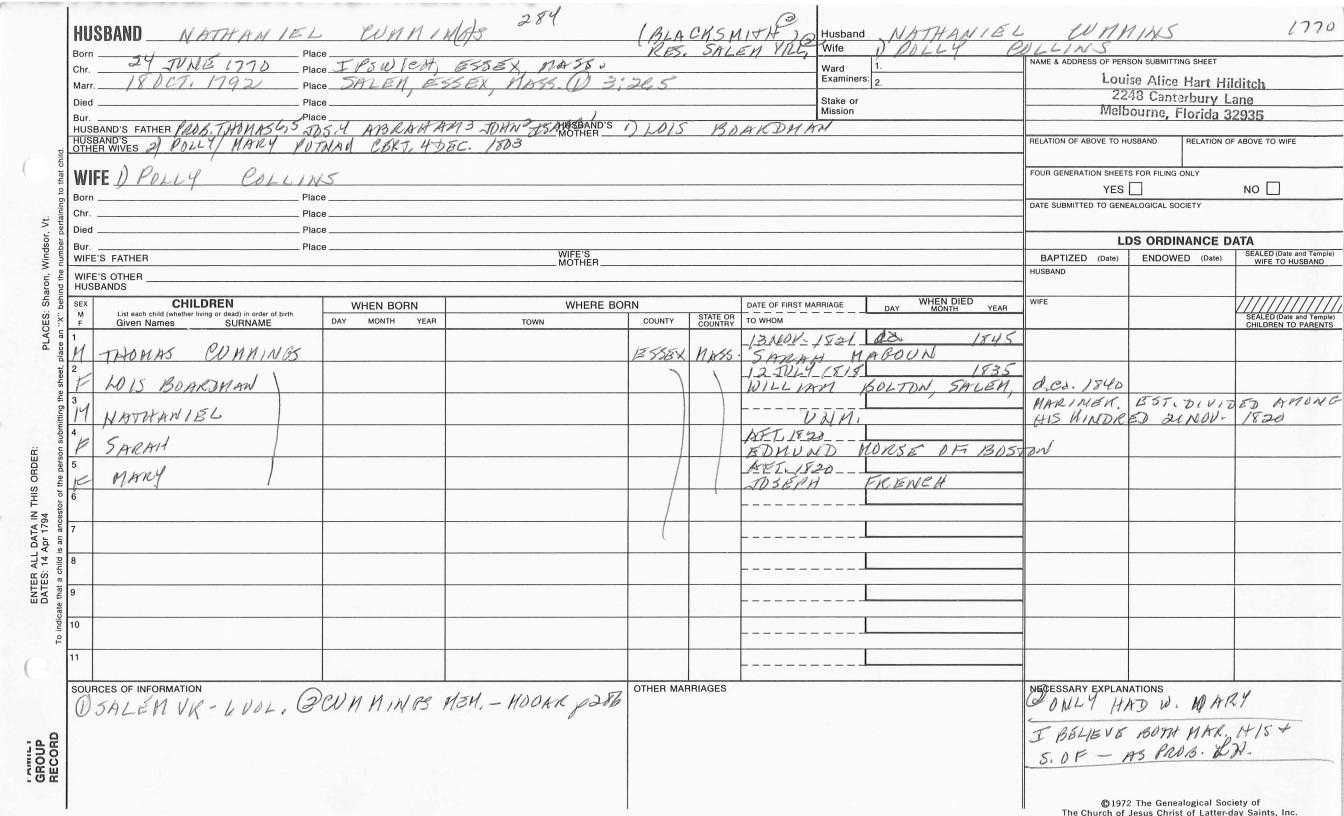 284
HUSBAND NATHANIEL CUMMINGS (BLACKSMITH) ②
RES. SALEM
Born Place
Chr. 24 JUNE 1770 Place IPSWICH, ESSEX, MASS.
Marr. 18 OCT. 1792 Place SALEM, ESSEX, MASS. ① 3:265
Died Place
Bur. Place
HUSBAND'S FATHER PROB. THOMAS JOS.4 ABRAHAM3 JOHN2 HUSBAND'S MOTHER 1) LOIS BOARDMAN
HUSBAND'S OTHER WIVES 2) POLLY/MARY PUTNAM CERT. 4 DEC. 1803
Husband NATHANIEL CUMMINS 1770
Wife 1) POLLY COLLINS
Ward Examiners: 1.
2.
Stake or Mission
NAME & ADDRESS OF PERSON SUBMITTING SHEET
Louise Alice Hart Hilditch
2248 Canterbury Lane
Melbourne, Florida 32935
RELATION OF ABOVE TO HUSBAND RELATION OF ABOVE TO WIFE
FOUR GENERATION SHEETS FOR FILING ONLY
YES NO
DATE SUBMITTED TO GENEALOGICAL SOCIETY
WIFE 1) POLLY COLLINS
Born Place
Chr. Place
Died Place
Bur. Place
WIFE'S FATHER WIFE'S MOTHER
WIFE'S OTHER HUSBANDS
LDS ORDINANCE DATA
BAPTIZED (Date) ENDOWED (Date) SEALED (Date and Temple) WIFE TO HUSBAND
HUSBAND
WIFE
SEALED (Date and Temple) CHILDREN TO PARENTS
SEX M F
CHILDREN
List each child (whether living or dead) in order of birth
Given Names SURNAME
WHEN BORN
DAY MONTH YEAR
WHERE BORN
TOWN COUNTY STATE OR COUNTRY
DATE OF FIRST MARRIAGE
TO WHOM
WHEN DIED
DAY MONTH YEAR
1 13 NOV. 1821 1845
M THOMAS CUMMINGS ESSEX MASS. SARAH MAGOUN
2 12 JULY 1818 1835
F LOIS BOARDMAN WILLIAM BOLTON, SALEM, d.ca. 1840
3 MARINER. EST. DIVIDED AMONG
M NATHANIEL UNM. HIS KINDRED 21 NOV. 1820
4 AFT. 1820
F SARAH EDMUND MORSE OF BOSTON
5 AFT. 1820
F MARY JOSEPH FRENCH
6
7
8
9
10
11
SOURCES OF INFORMATION
① SALEM VR - 6 VOL. ② CUMMINGS MEM. - MOOAR p286
OTHER MARRIAGES
NECESSARY EXPLANATIONS
② ONLY HAD W. MARY
I BELIEVE BOTH MAR. HIS +
S. OF — AS PROB.
©1972 The Genealogical Society of
The Church of Jesus Christ of Latter-day Saints, Inc.
ENTER ALL DATA IN THIS ORDER:
DATES: 14 Apr 1794
PLACES: Sharon, Windsor, Vt.
To indicate that a child is an ancestor of the person submitting the sheet, place an "X" behind the number pertaining to that child.
FAMILY
GROUP
RECORD